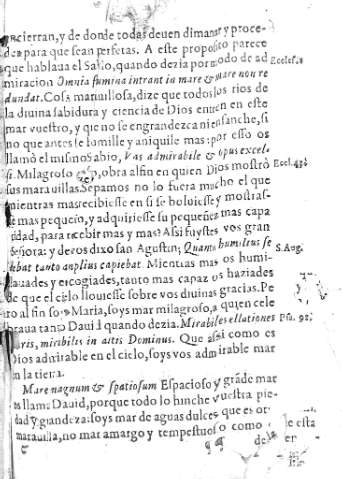 encierran, y de donde todas deuen dimanar y proce-
der para que sean perfetas. A este proposito parece
que hablaua el Sabio, quando dezia por modo de ad
miracion Omnia flumina intrant in mare & mare non re
dundat. Cosa marauillosa, dize que todos los rios de
la diuina sabiduria y ciencia de Dios entren en este
mar vuestro, y que no se engrandezca ni ensanche, si
no que antes le humille y aniquile mas: por esso os
llamò el mismo Sabio, Vas admirabile & opus excel-
si. Milagroso obra alfin en quien Dios mostrò
sus marauillas. Sepamos no lo fuera mucho el que
mientras mas recibiesse en si se boluiesse y mostras-
se mas pequeño, y adquiriesse su pequeñez mas capa
cidad, para recebir mas y mas? Assi fuystes vos gran
Señora: y de vos dixo san Agustin; Quanto humilius se
debat tanto amplius capiebat. Mientras mas os humi-
llauades y encogiades, tanto mas capaz os haziades
de que el cielo llouiesse sobre vos diuinas gracias. Pe
ro al fin sois Maria, soys mar milagroso, a quien cele
braua tanto Dauid quando dezia. Mirabiles ellationes
maris, mirabilis in altis Dominus. Que assi como es
Dios admirable en el cielo, soys vos admirable mar
en la tierra.
Mare magnum & spatiosum Espacioso y grãde mar
os llama Dauid, porque todo lo hinche vuestra pie-
dad y grandeza: soys mar de aguas dulces que es otra
marauilla, no mar amargo y tempestuoso como le esta
¶¶ de
Ecclesi.1
Eccl.43.
S.Aug.
Psa. 92.
er